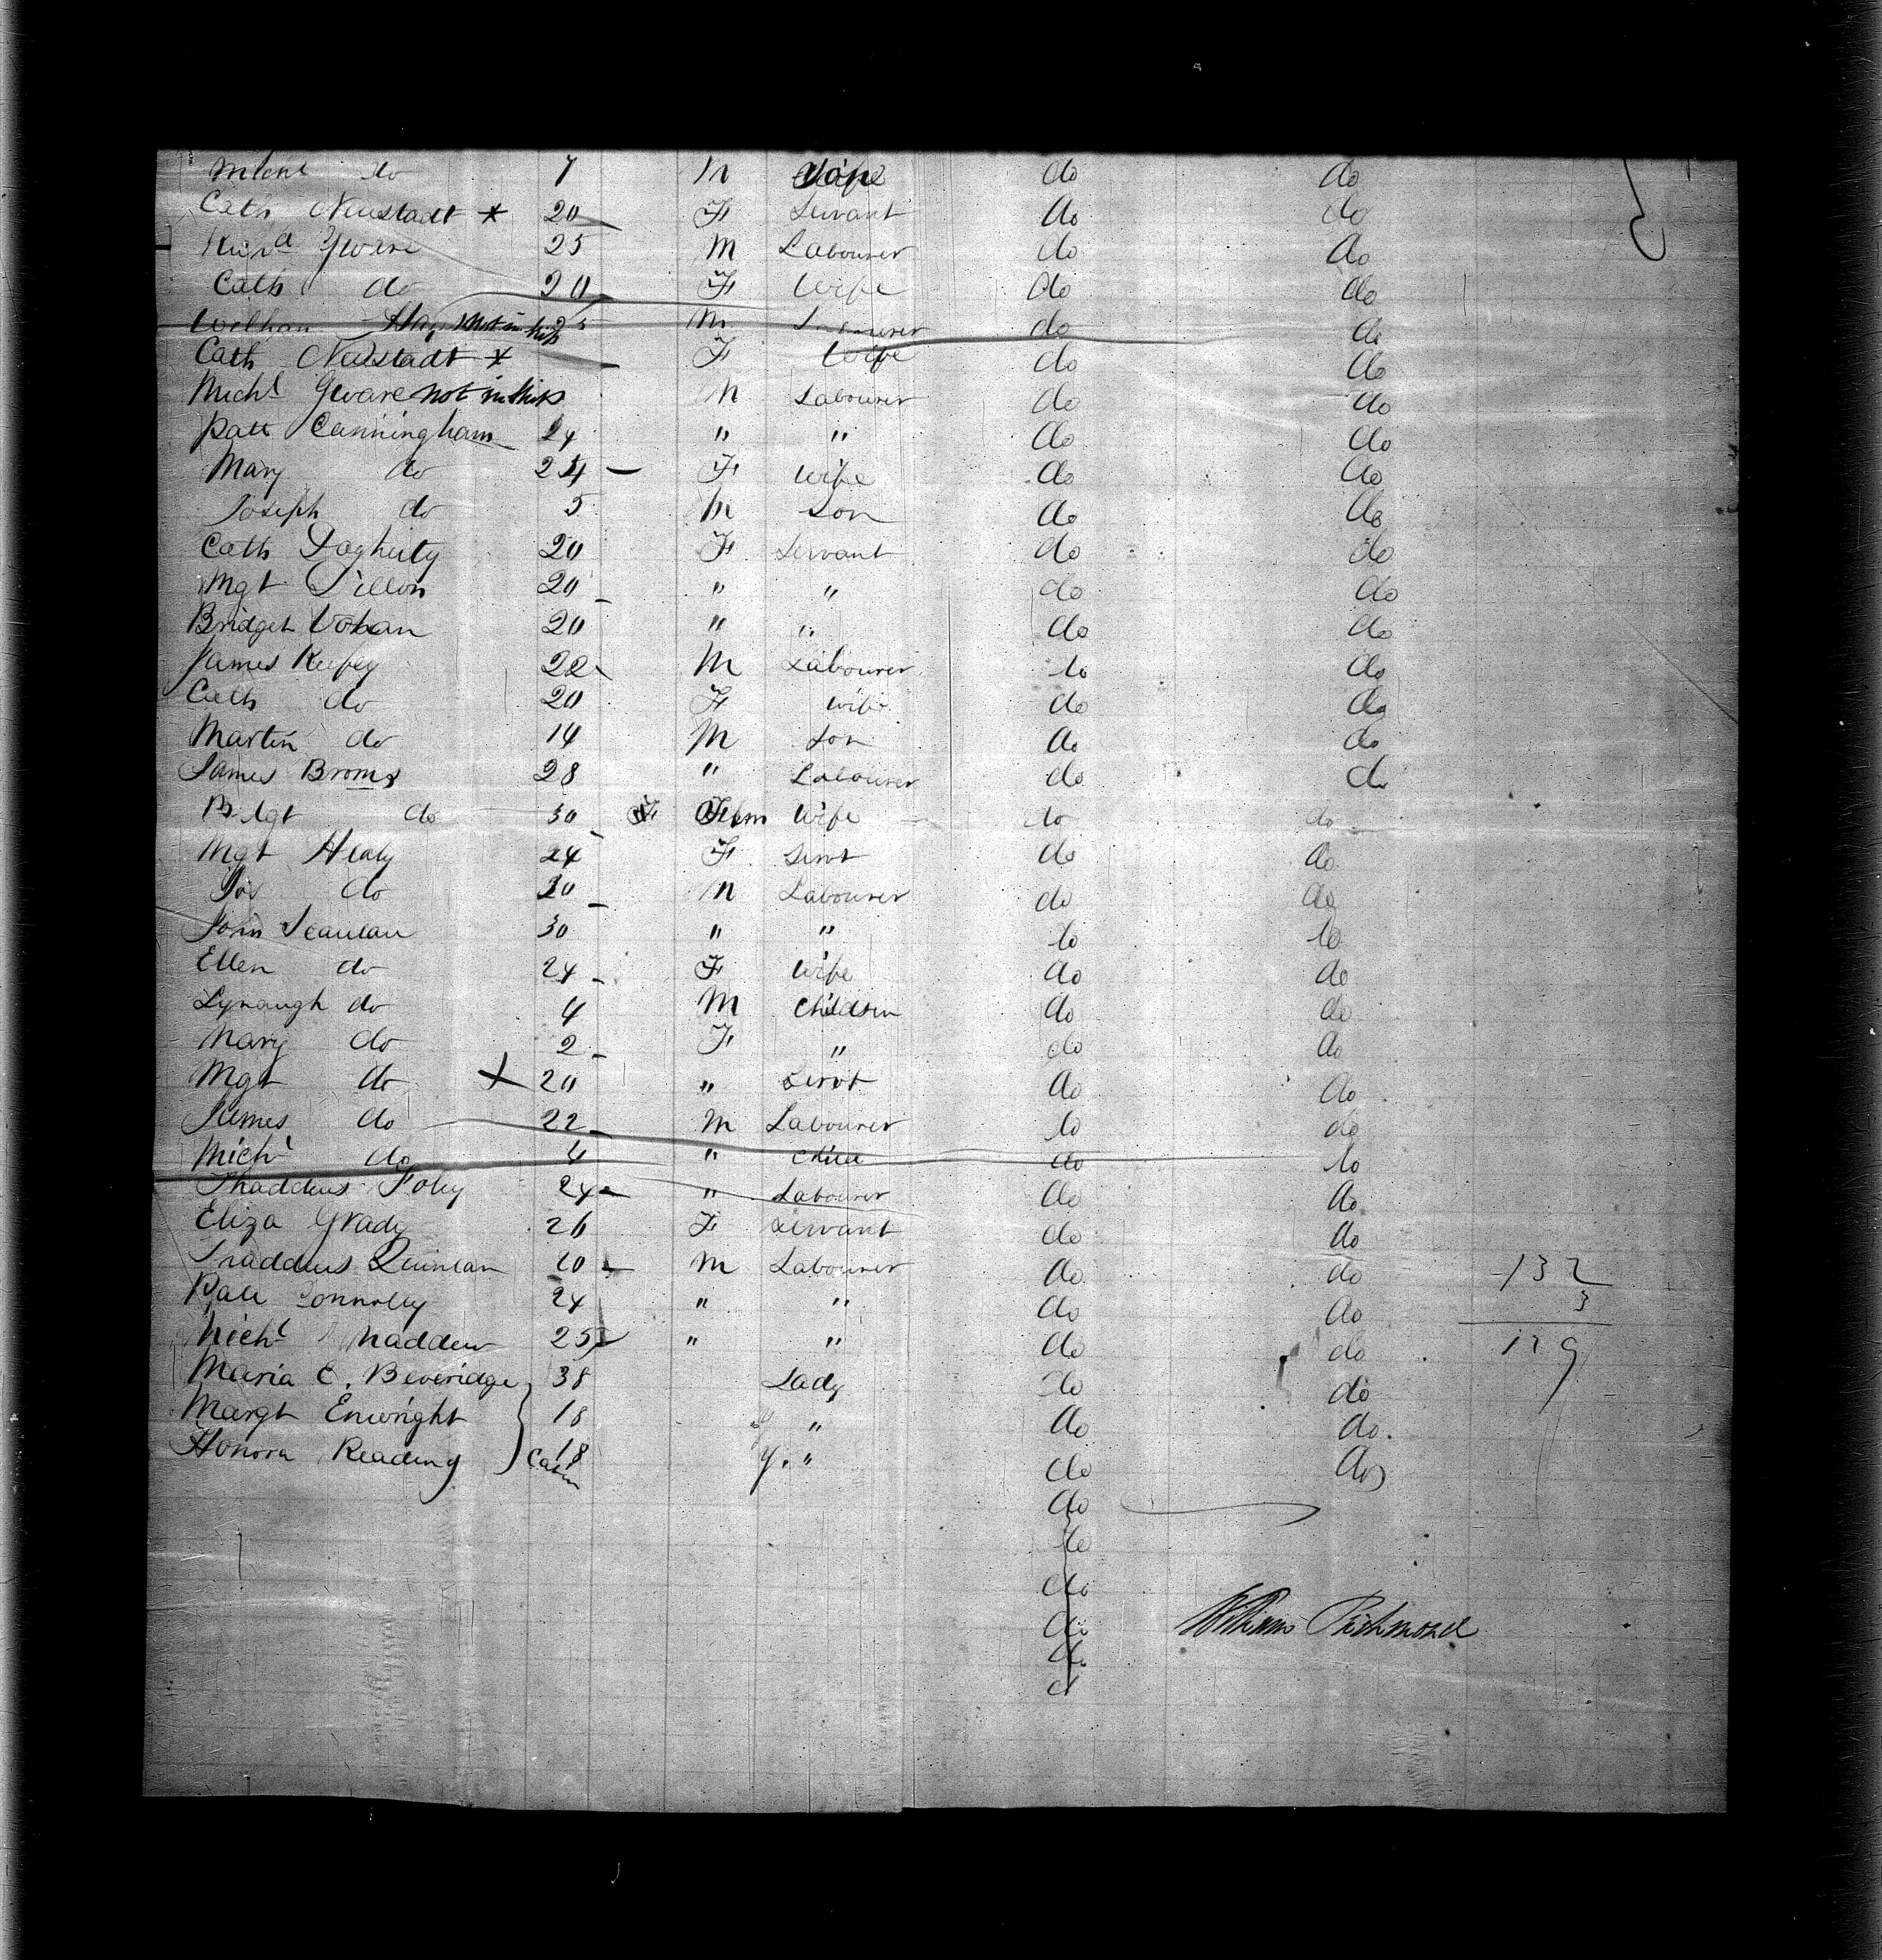 Michl do 7 M Son do do
Cath Neustadt * 20 F Servant do do
Gware 25 M Labourer do do
Cath do 20 F Wife do do
William not in ship 25 M Labourer do do
Cath Neustadt * F Wife do do
Michl Gware not in ship M Labourer do do
Patt Cunningham 24 " " do do
Mary do 24 F Wife do do
Joseph do 5 M Son do do
Cath Dogherty 20 F Servant do do
Mgt Dillon 20 " " do do
Bridget 20 " " do do
James Keefey 22 M Labourer do do
Cath do 20 F Wife do do
Martin do 14 M Son do do
James 28 " Labourer do do
Bdgt do 30 F Fem Wife do do
Mgt Healy 24 F Servt do do
Jas do 20 M Labourer do do
John Scanlan 30 " " do do
Ellen do 24 F Wife do do
Lynaugh do 4 M Children do do
Mary do 2 F " do do
Mgt do X 20 " Servt do do
James do 22 M Labourer do do
Michl do 4 " Child do do
Thaddeus Foley 24 " Labourer do do
Eliza Grady 26 F Servant do do
Thaddeus Quinlan M Labourer do do
Patt Connolly 24 " " do do
Michl Madden 25 " " do do
Maria C. Beveridge 38 Lady do do
Margt Enwright 18 " do do
Honora Reading 18 Cabin y. " do do
do
do
do
do
do
d
132
3
129
William Richmond